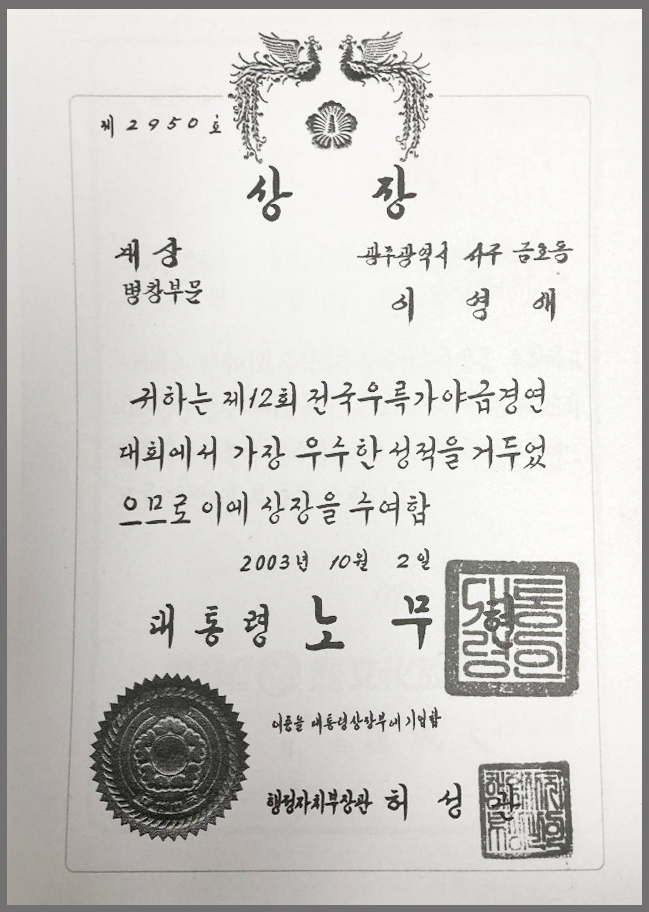 제 2950 호
상 장
대상
병창부문
광주광역시 서구 금호동
이 영 애
귀하는 제12회 전국우륵가야금경연
대회에서 가장 우수한 성적을 거두었
으므로 이에 상장을 수여함
2003년 10월 2일
대통령 노 무 현
이증을 대통령상장부에 기입함
행정자치부장관 허 성 관